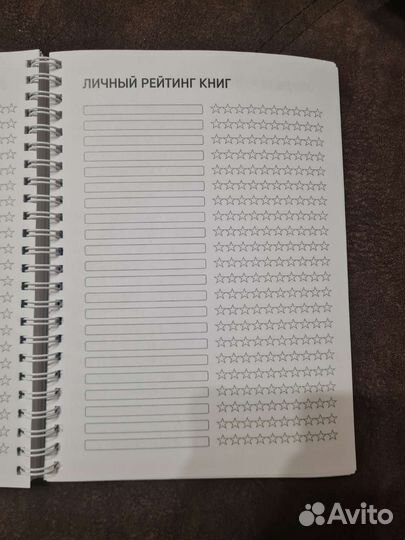 ЛИЧНЫЙ РЕЙТИНГ КНИГ
Avito